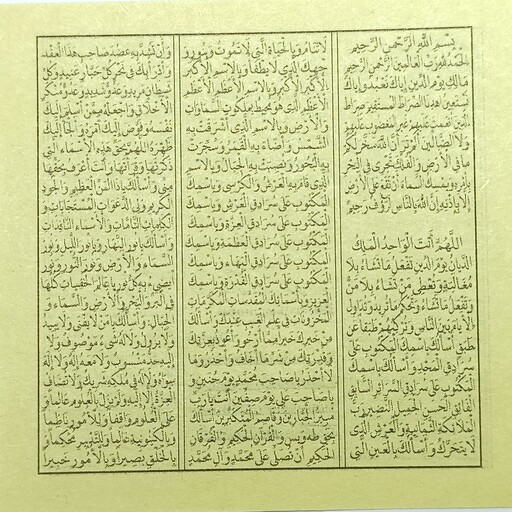 بِسْمِ اللَّهِ الرَّحْمٰنِ الرَّحِيمِ
اَلْحَمْدُ لِلّٰهِ رَبِّ الْعالَمِينَ الرَّحْمٰنِ الرَّحِيمِ
مالِكِ يَوْمِ الدِّينِ اِيّاكَ نَعْبُدُ وَ اِيّاكَ
نَسْتَعِينُ اهْدِنَا الصِّراطَ الْمُسْتَقِيمَ صِراطَ
الَّذِينَ اَنْعَمْتَ عَلَيْهِمْ غَيْرِ الْمَغْضُوبِ عَلَيْهِمْ
وَلَا الضّالِّينَ اَلَمْ تَرَ اَنَّ اللَّهَ سَخَّرَ لَكُمْ
ما فِي الْاَرْضِ وَ الْفُلْكَ تَجْرِي فِي الْبَحْرِ
بِاَمْرِهِ وَ يُمْسِكُ السَّماءَ اَنْ تَقَعَ عَلَى الْاَرْضِ
اِلّا بِاِذْنِهِ اِنَّ اللَّهَ بِالنّاسِ لَرَؤُفٌ رَحِيمٌ
اَللّٰهُمَّ اَنْتَ الْواحِدُ الْمَلِكُ
الدَّيّانُ يَوْمَ الدِّينِ تَفْعَلُ ما تَشاءُ بِلا
مُغالَبَةٍ وَ تُعْطِي مَنْ تَشاءُ بِلا مَنٍّ
وَ تَفْعَلُ ما تَشاءُ وَ تَحْكُمُ ما تُرِيدُ وَ تُداوِلُ
الْاَيّامَ بَيْنَ النّاسِ وَ تُرَكِّبُهُمْ طَبَقاً عَنْ
طَبَقٍ اَسْأَلُكَ بِاسْمِكَ الْمَكْتُوبِ عَلى
سُرادِقِ الْمَجْدِ وَ اَسْأَلُكَ بِاسْمِكَ
الْمَكْتُوبِ عَلى سُرادِقِ السَّرائِرِ السّابِقِ
الْفائِقِ الْحَسَنِ الْجَمِيلِ النَّضِيرِ رَبِّ
الْمَلائِكَةِ الثَّمانِيَةِ وَ الْعَرْشِ الَّذِي
لا يَتَحَرَّكُ وَ اَسْأَلُكَ بِالْعَيْنِ الَّتِي
لا تَنامُ وَ بِالْحَياةِ الَّتِي لا تَمُوتُ وَ بِنُورِ
وَجْهِكَ الَّذِي لا يُطْفَأُ وَ بِالْاِسْمِ الْاَكْبَرِ
الْاَكْبَرِ الْاَكْبَرِ وَ بِالْاِسْمِ الْاَعْظَمِ الْاَعْظَمِ
الْاَعْظَمِ الَّذِي هُوَ مُحِيطٌ بِمَلَكُوتِ السَّماواتِ
وَ الْاَرْضِ وَ بِالْاِسْمِ الَّذِي اَشْرَقَتْ بِهِ
الشَّمْسُ وَ اَضاءَ بِهِ الْقَمَرُ وَ سُجِّرَتْ
بِهِ الْبُحُورُ وَ نُصِبَتْ بِهِ الْجِبالُ وَ بِالْاِسْمِ
الَّذِي قامَ بِهِ الْعَرْشُ وَ الْكُرْسِيُّ وَ بِاسْمِكَ
الْمَكْتُوبِ عَلى سُرادِقِ الْعَرْشِ وَ بِاسْمِكَ
الْمَكْتُوبِ عَلى سُرادِقِ الْعِزَّةِ وَ بِاسْمِكَ
الْمَكْتُوبِ عَلى سُرادِقِ الْعَظَمَةِ وَ بِاسْمِكَ
الْمَكْتُوبِ عَلى سُرادِقِ الْبَهاءِ وَ بِاسْمِكَ
الْمَكْتُوبِ عَلى سُرادِقِ الْقُدْرَةِ وَ بِاسْمِكَ
الْعَزِيزِ وَ بِاَسْمائِكَ الْمُقَدَّساتِ الْمُكَرَّماتِ
الْمَخْزُوناتِ فِي عِلْمِ الْغَيْبِ عِنْدَكَ وَ اَسْأَلُكَ
مِنْ خَيْرِكَ خَيْراً مِمّا اَرْجُو وَ اَعُوذُ بِعِزَّتِكَ
وَ قُدْرَتِكَ مِنْ شَرِّ ما اَخافُ وَ اَحْذَرُ وَ ما
لا اَحْذَرُ يا صاحِبَ مُحَمَّدٍ يَوْمَ حُنَيْنٍ وَ
يا صاحِبَ عَلِيٍّ يَوْمَ صِفِّينَ اَنْتَ يا رَبِّ
مُبِيرُ الْجَبّارِينَ وَ قاصِمُ الْمُتَكَبِّرِينَ اَسْأَلُكَ
بِحَقِّ طه وَ يس وَ الْقُرْآنِ الْحَكِيمِ وَ الْفُرْقانِ
الْحَكِيمِ اَنْ تُصَلِّيَ عَلى مُحَمَّدٍ وَ آلِ مُحَمَّدٍ
وَ اَنْ تَشُدَّ بِهِ عَضُدَ صاحِبِ هٰذَا الْعَقْدِ
وَ اَدْرَأُ بِكَ فِي نَحْرِ كُلِّ جَبّارٍ عَنِيدٍ وَ كُلِّ
شَيْطانٍ مَرِيدٍ وَ عَدُوٍّ شَدِيدٍ وَ عَدُوٍّ مُنْكَرِ
الْاَخْلاقِ وَ اجْعَلْهُ مِمَّنْ اَسْلَمَ اِلَيْكَ
نَفْسَهُ وَ فَوَّضَ اِلَيْكَ اَمْرَهُ وَ اَلْجَأَ اِلَيْكَ
ظَهْرَهُ اَللّٰهُمَّ بِحَقِّ هٰذِهِ الْاَسْماءِ الَّتِي
ذَكَرْتُها وَ قَرَأْتُها وَ اَنْتَ اَعْرَفُ بِحَقِّها
مِنِّي وَ اَسْأَلُكَ يا ذَا الْمَنِّ الْعَظِيمِ وَ الْجُودِ
الْكَرِيمِ وَلِيَّ الدَّعَواتِ الْمُسْتَجاباتِ وَ
الْكَلِماتِ التّامّاتِ وَ الْاَسْماءِ النّافِذاتِ
وَ اَسْأَلُكَ يا نُورَ النَّهارِ وَ يا نُورَ اللَّيْلِ وَ نُورَ
السَّماءِ وَ الْاَرْضِ وَ نُورَ النُّورِ وَ نُوراً
يُضِيءُ بِهِ كُلُّ نُورٍ يا عالِمَ الْخَفِيّاتِ كُلِّها
فِي الْبَرِّ وَ الْبَحْرِ وَ الْاَرْضِ وَ السَّماءِ وَ
الْجِبالِ وَ اَسْأَلُكَ يا مَنْ لا يَفْنى وَ لا يَبِيدُ
وَ لا يَزُولُ وَ لا لَهُ شَيْءٌ مَوْصُوفٌ وَ لا
اِلَيْهِ حَدٌّ مَنْسُوبٌ وَ لا مَعَهُ اِلٰهٌ وَ لا اِلٰهَ
سِواهُ وَ لا لَهُ فِي مُلْكِهِ شَرِيكٌ وَ لا تُضافُ
الْعِزَّةُ اِلّا اِلَيْهِ لَمْ يَزَلْ بِالْعُلُومِ عالِماً وَ
عَلَى الْعُلُومِ واقِفاً وَ لِلْاُمُورِ ناظِماً
وَ بِالْكَيْنُونِيَّةِ عالِماً وَ لِلتَّدْبِيرِ مُحْكِماً وَ
بِالْخَلْقِ بَصِيراً وَ بِالْاُمُورِ خَبِيراً